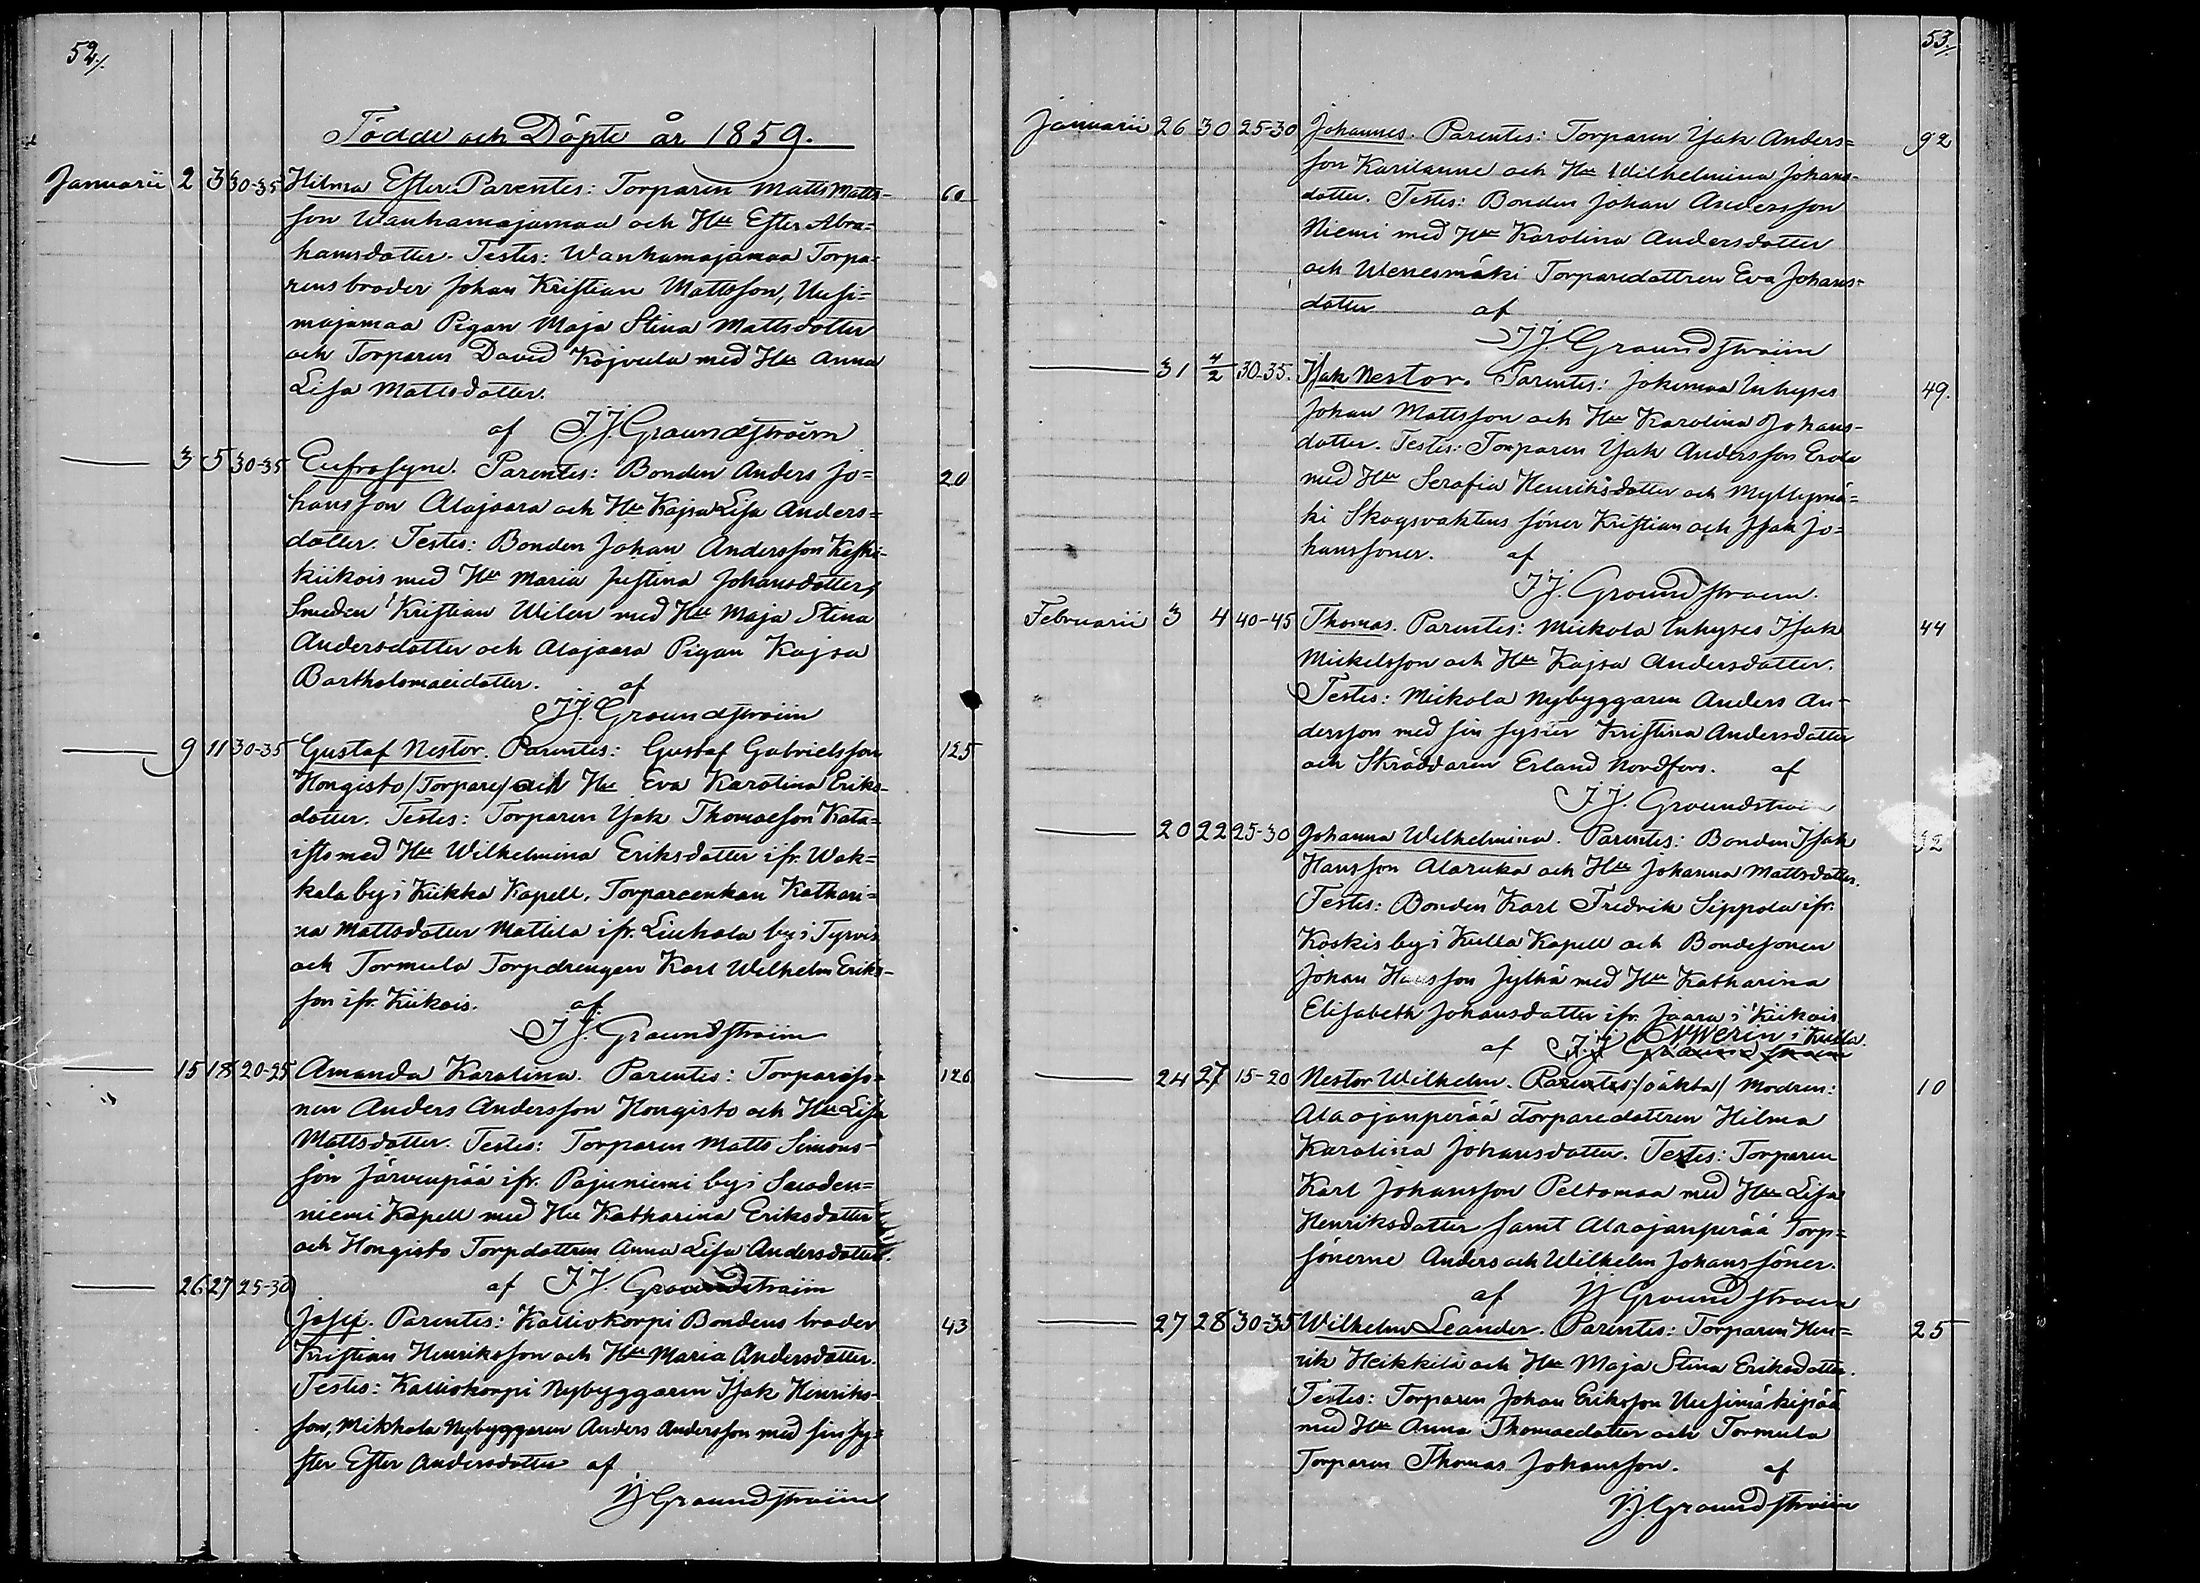 52./.
Födde och Döpte år 1859.
Januarii 2 3 30-35 Hilma Ester. Parentes: Torparen Matts Matts- 60
son Wanhamajamaa och Hu Ester Abra=
hamsdotter. Testes: Wanhamajamaa Torpa=
rens broder Johan Kristian Mattsson, Uusi=
majamaa Pigan Maja Stina Mattsdotter
och Torparen David Kojvula med Hu Anna
Lisa Mattsdotter.
af J. J. Groundstroëm
— 3 5 30-35 Eufrosyne. Parentes: Bonden Anders Jo= 20
hansson Alajaara och Hu Kajsa Lisa Anders=
dotter. Testes: Bonden Johan Andersson Keski-
kiikois med Hu Maria Justina Johansdotter,
Smeden Kristian Wilen med Hu Maja Stina
Andersdotter och Alajaara Pigan Kajsa
Bartholomaeidotter. af
J. J. Groundstroëm
— 9 11 30-35 Gustaf Nestor. Parentes: Gustaf Gabrielsson 125
Hongisto /Torpare/ och Hu Eva Karolina Eriks-
dotter. Testes: Torparen Isak Thomaesson Kata=
isto med Hu Wilhelmina Eriksdotter ifr. Wak=
kala by i Kiikka Kapell, Torpareenkan Kathari=
na Mattsdotter Mattila ifr. Liuhala by i Tyrvis
och Tormula Torpdrengen Karl Wilhelm Eriks-
son ifr. Kiikois. af
J. J. Groundstroëm
— 15 18 20-25 Amanda Karolina. Parentes: Torpareso= 126
nen Anders Andersson Hongisto och Hu Lisa
Mattsdotter. Testes: Torparen Matts Simons-
son Järvenpää ifr. Pajuniemi by i Suoden=
niemi Kapell med Hu Katharina Eriksdotter
och Hongisto Torpdottren Anna Lisa Andersdotter.
af J. J. Groundstroëm
— 26 27 25-30
Josef. Parentes: Kalliokorpi Bondens broder 43
Kristian Henriksson och Hu Maria Andersdotter.
Testes: Kalliokorpi Nybyggaren Isak Henriks-
son, Mikkola Nybyggaren Anders Andersson med sin sy=
ster Ester Andersdotter af
J J Groundstroëm
53./.
Januarii 26 30 25-30 Johannes. Parentes: Torparen Isak Anders= 92
son Karilanne och Hu Wilhelmina Johans-
dotter. Testes: Bonden Johan Andersson
Niemi med Hu Karolina Andersdotter
och Wenesmäki Torparedottren Eva Johans-
dotter af
J J. Groundstroëm
— 31 4/2 30-35. Isak Nestor. Parentes: Jokimaa Inhyses 49.
Johan Mattsson och Hu Karolina Johans-
dotter. Testes: Torparen Isak Andersson Erola
med Hu Serafia Henriksdotter och Myllymä=
ki Skogsvaktens söner Kristian och Isak Jo=
hanssöner. af
J J. Groundstroem.
Februarii 3 4 40-45 Thomas. Parentes: Mickola Inhyses Isak 44
Mickelsson och Hu Kajsa Andersdotter.
Testes: Mickola Nybyggaren Anders An-
dersson med sin syster Kristina Andersdotter
och Skräddaren Erland Nordfors. af
J J. Groundstroëm
— 20 22 25-30 Johanna Wilhelmina. Parentes: Bonden Isak 32
Hansson Alaruka och Hu Johanna Mattsdotter.
Testes: Bonden Karl Fredrik Sippola ifr.
Koskis by i Kulla Kapell och Bondesonen
Johan Hansson Jylhä med Hu Katharina
Elisabeth Johansdotter ifr. Jaara i Kiikois
af J. J. Groundstroem i Kulla.
— 24 27 15-20 Nestor Wilhelm. Parentes: /oäkta/ Modren: 10
Alaojanperää Torparedottren Hilma
Karolina Johansdotter. Testes: Torparen
Karl Johansson Peltomaa med Hu Lisa
Henriksdotter samt Alaojanperää Torp=
sönerne Anders och Wilhelm Johanssöner.
af J J Groundstroem
— 27 28 30-35 Wilhelm Leander. Parentes: Torparen Hen= 25
rik Heikkilä och Hu Maja Stina Eriksdotter.
Testes: Torparen Johan Eriksson Uusimäkipää
med Hu Anna Thomaedotter och Tormula
Torparen Thomas Johansson. af
J J. Groundstroëm